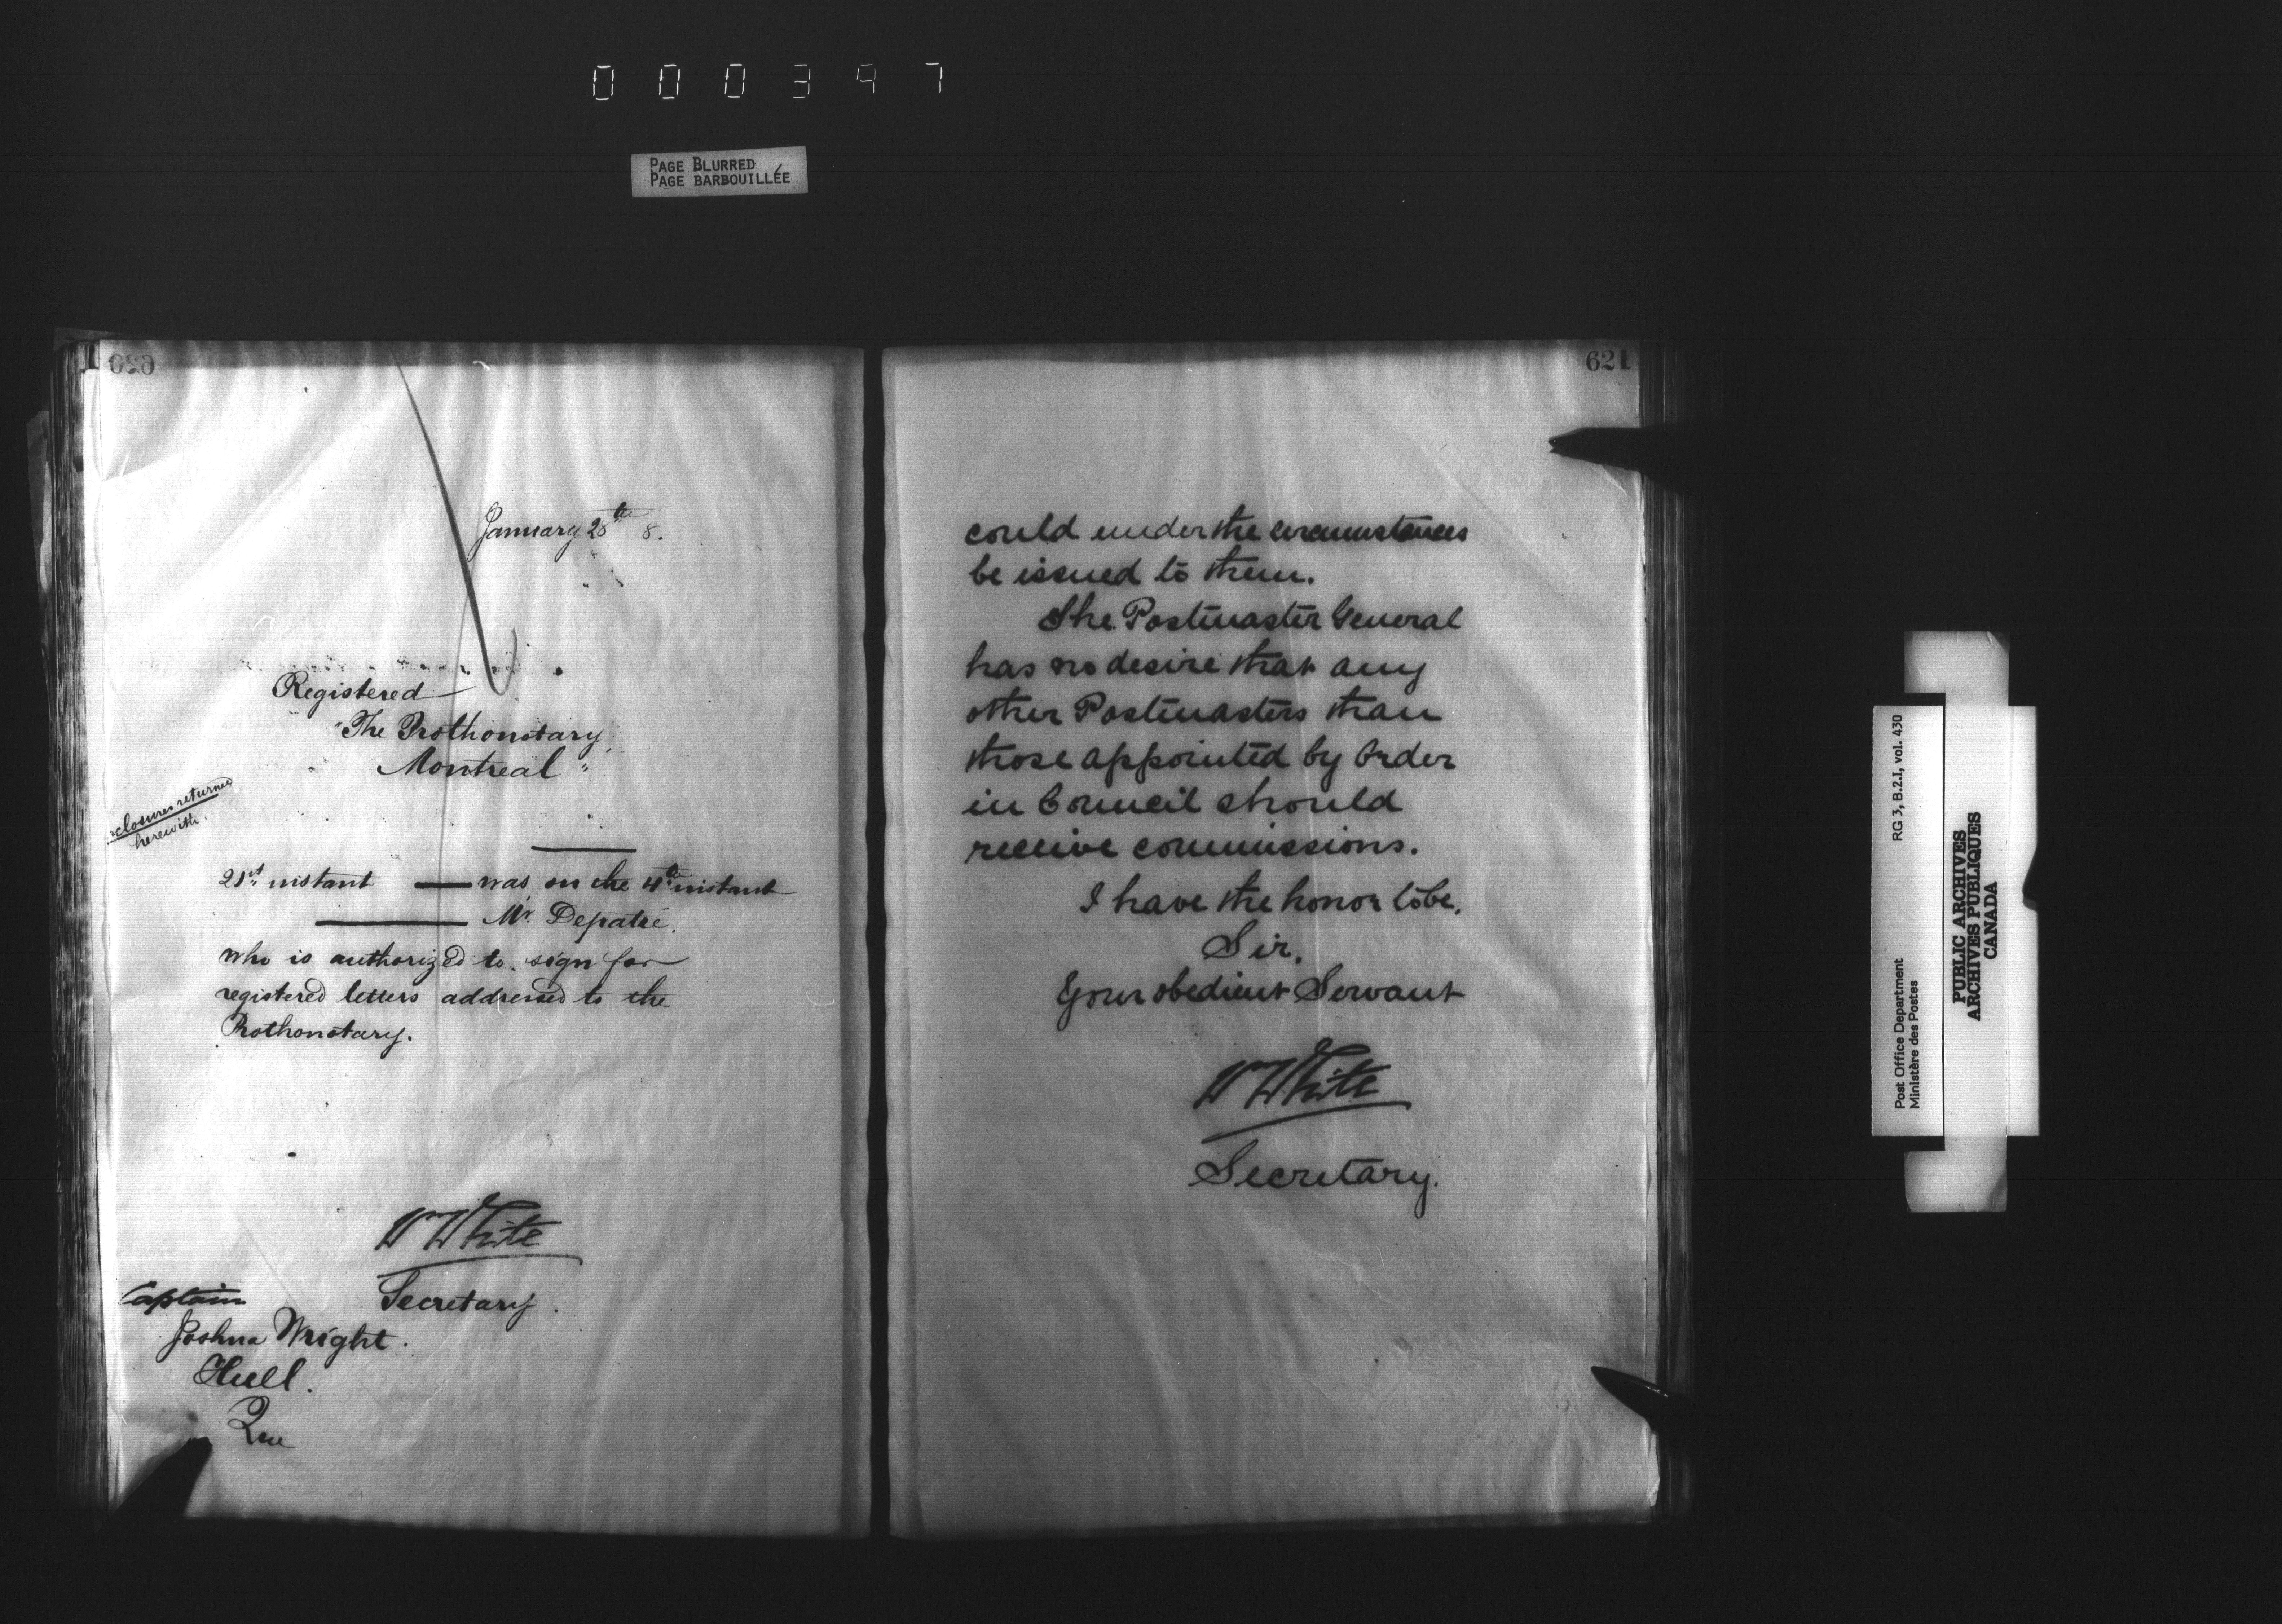 000397
PAGE BLURRED
PAGE BARBOUILLÉE
620
January 28th 8.
Registered
"The Prothonotary,
Montreal"
closures returned
herewith.
21st instant — was on the 4th instant
— Mr. Depatie.
who is authorized to sign for
registered letters addressed to the
Prothonotary.
Wm White
Secretary.
Captain
Joshua Wright.
Hull.
Que
621
could under the circumstances
be issued to them.
The Postmaster General
has no desire that any
other Postmasters than
those appointed by Order
in Council should
receive commissions.
I have the honor to be,
Sir,
Your obedient Servant
Wm White
Secretary.
Post Office Department
Ministère des Postes
RG 3, B.2.I, vol. 430
PUBLIC ARCHIVES
ARCHIVES PUBLIQUES
CANADA